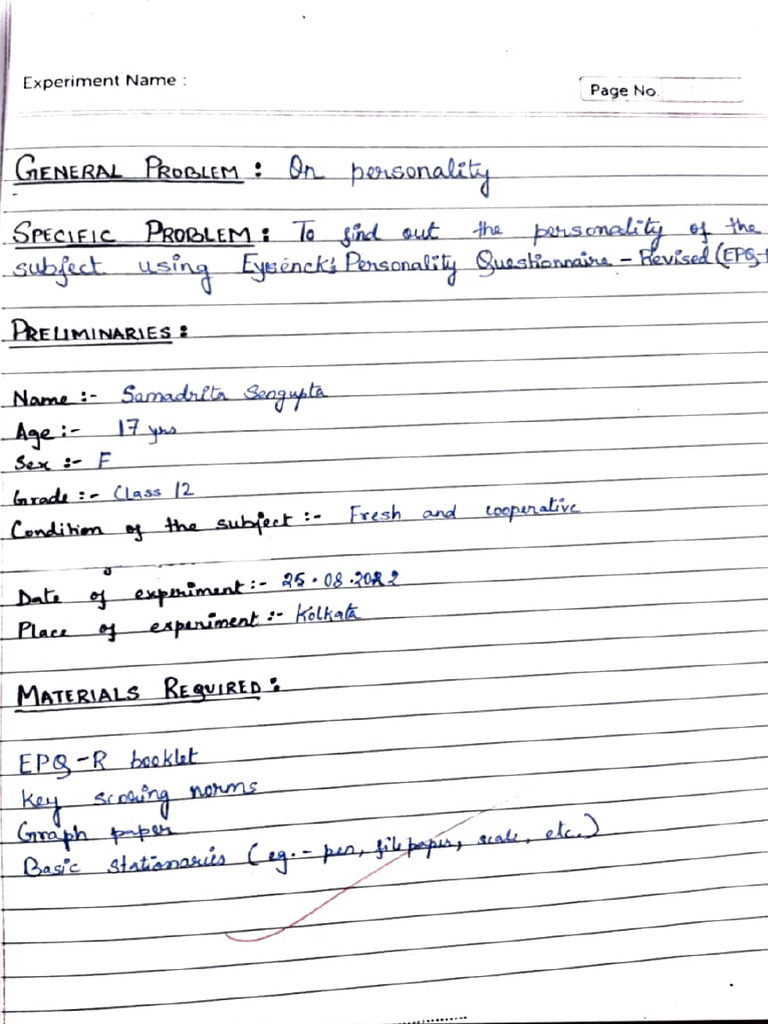 Experiment Name :
Page No.
GENERAL PROBLEM : On personality
SPECIFIC PROBLEM : To find out the personality of the
subject using Eysenck's Personality Questionnaire - Revised (EPQ-
PRELIMINARIES :
Name :- Samadrita Sengupta
Age :- 17 yrs
Sex :- F
Grade :- Class 12
Condition of the subject :- Fresh and cooperative
Date of experiment :- 25.08.2022
Place of experiment :- Kolkata
MATERIALS REQUIRED :
EPQ-R booklet
Key scoring norms
Graph paper
Basic stationaries (eg. - pen, file paper, scale, etc.)